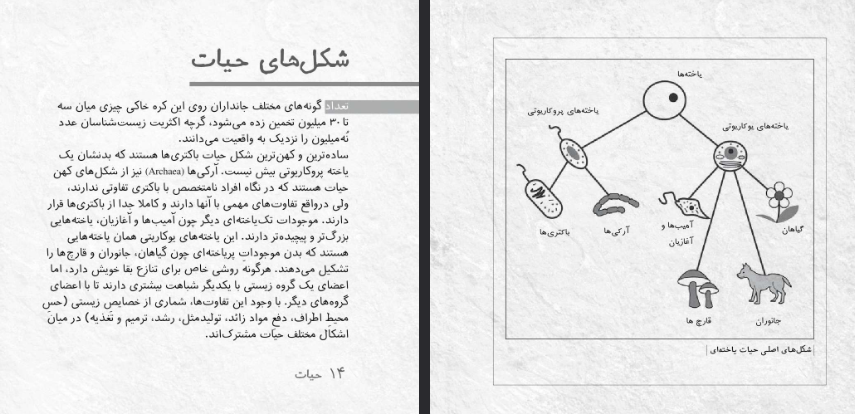 شکل‌های حیات
تعداد گونه‌های مختلف جانداران روی این کره خاکی چیزی میان سه
تا ۳۰ میلیون تخمین زده می‌شود، گرچه اکثریت زیست‌شناسان عدد
نُه‌میلیون را نزدیک به واقعیت می‌دانند.
ساده‌ترین و کهن‌ترین شکل حیات باکتری‌ها هستند که بدنشان یک
یاخته پروکاریوتی بیش نیست. آرکی‌ها (Archaea) نیز از شکل‌های کهن
حیات هستند که در نگاه افراد نامتخصص با باکتری تفاوتی ندارند،
ولی درواقع تفاوت‌های مهمی با آنها دارند و کاملا جدا از باکتری‌ها قرار
دارند. موجودات تک‌یاخته‌ای دیگر چون آمیب‌ها و آغازیان، یاخته‌هایی
بزرگ‌تر و پیچیده‌تر دارند. این یاخته‌های یوکاریتی همان یاخته‌هایی
هستند که بدن موجوداتِ پریاخته‌ای چون گیاهان، جانوران و قارچ‌ها را
تشکیل می‌دهند. هرگونه روشی خاص برای تنازع بقا خویش دارد، اما
اعضای یک گروه زیستی با یکدیگر شباهت بیشتری دارند تا با اعضای
گروه‌های دیگر. با وجود این تفاوت‌ها، شماری از خصایص زیستی (حسِ
محیطِ اطراف، دفعِ مواد زائد، تولیدمثل، رشد، ترمیم و تغذیه) در میانِ
اشکالِ مختلف حیات مشترک‌اند.
۱۴ حیات
یاخته‌ها
یاخته‌های پروکاریوتی
یاخته‌های یوکاریوتی
باکتری‌ها
آرکی‌ها
آمیب‌ها و
آغازیان
گیاهان
قارچ ها
جانوران
شکل‌های اصلی حیات یاخته‌ای